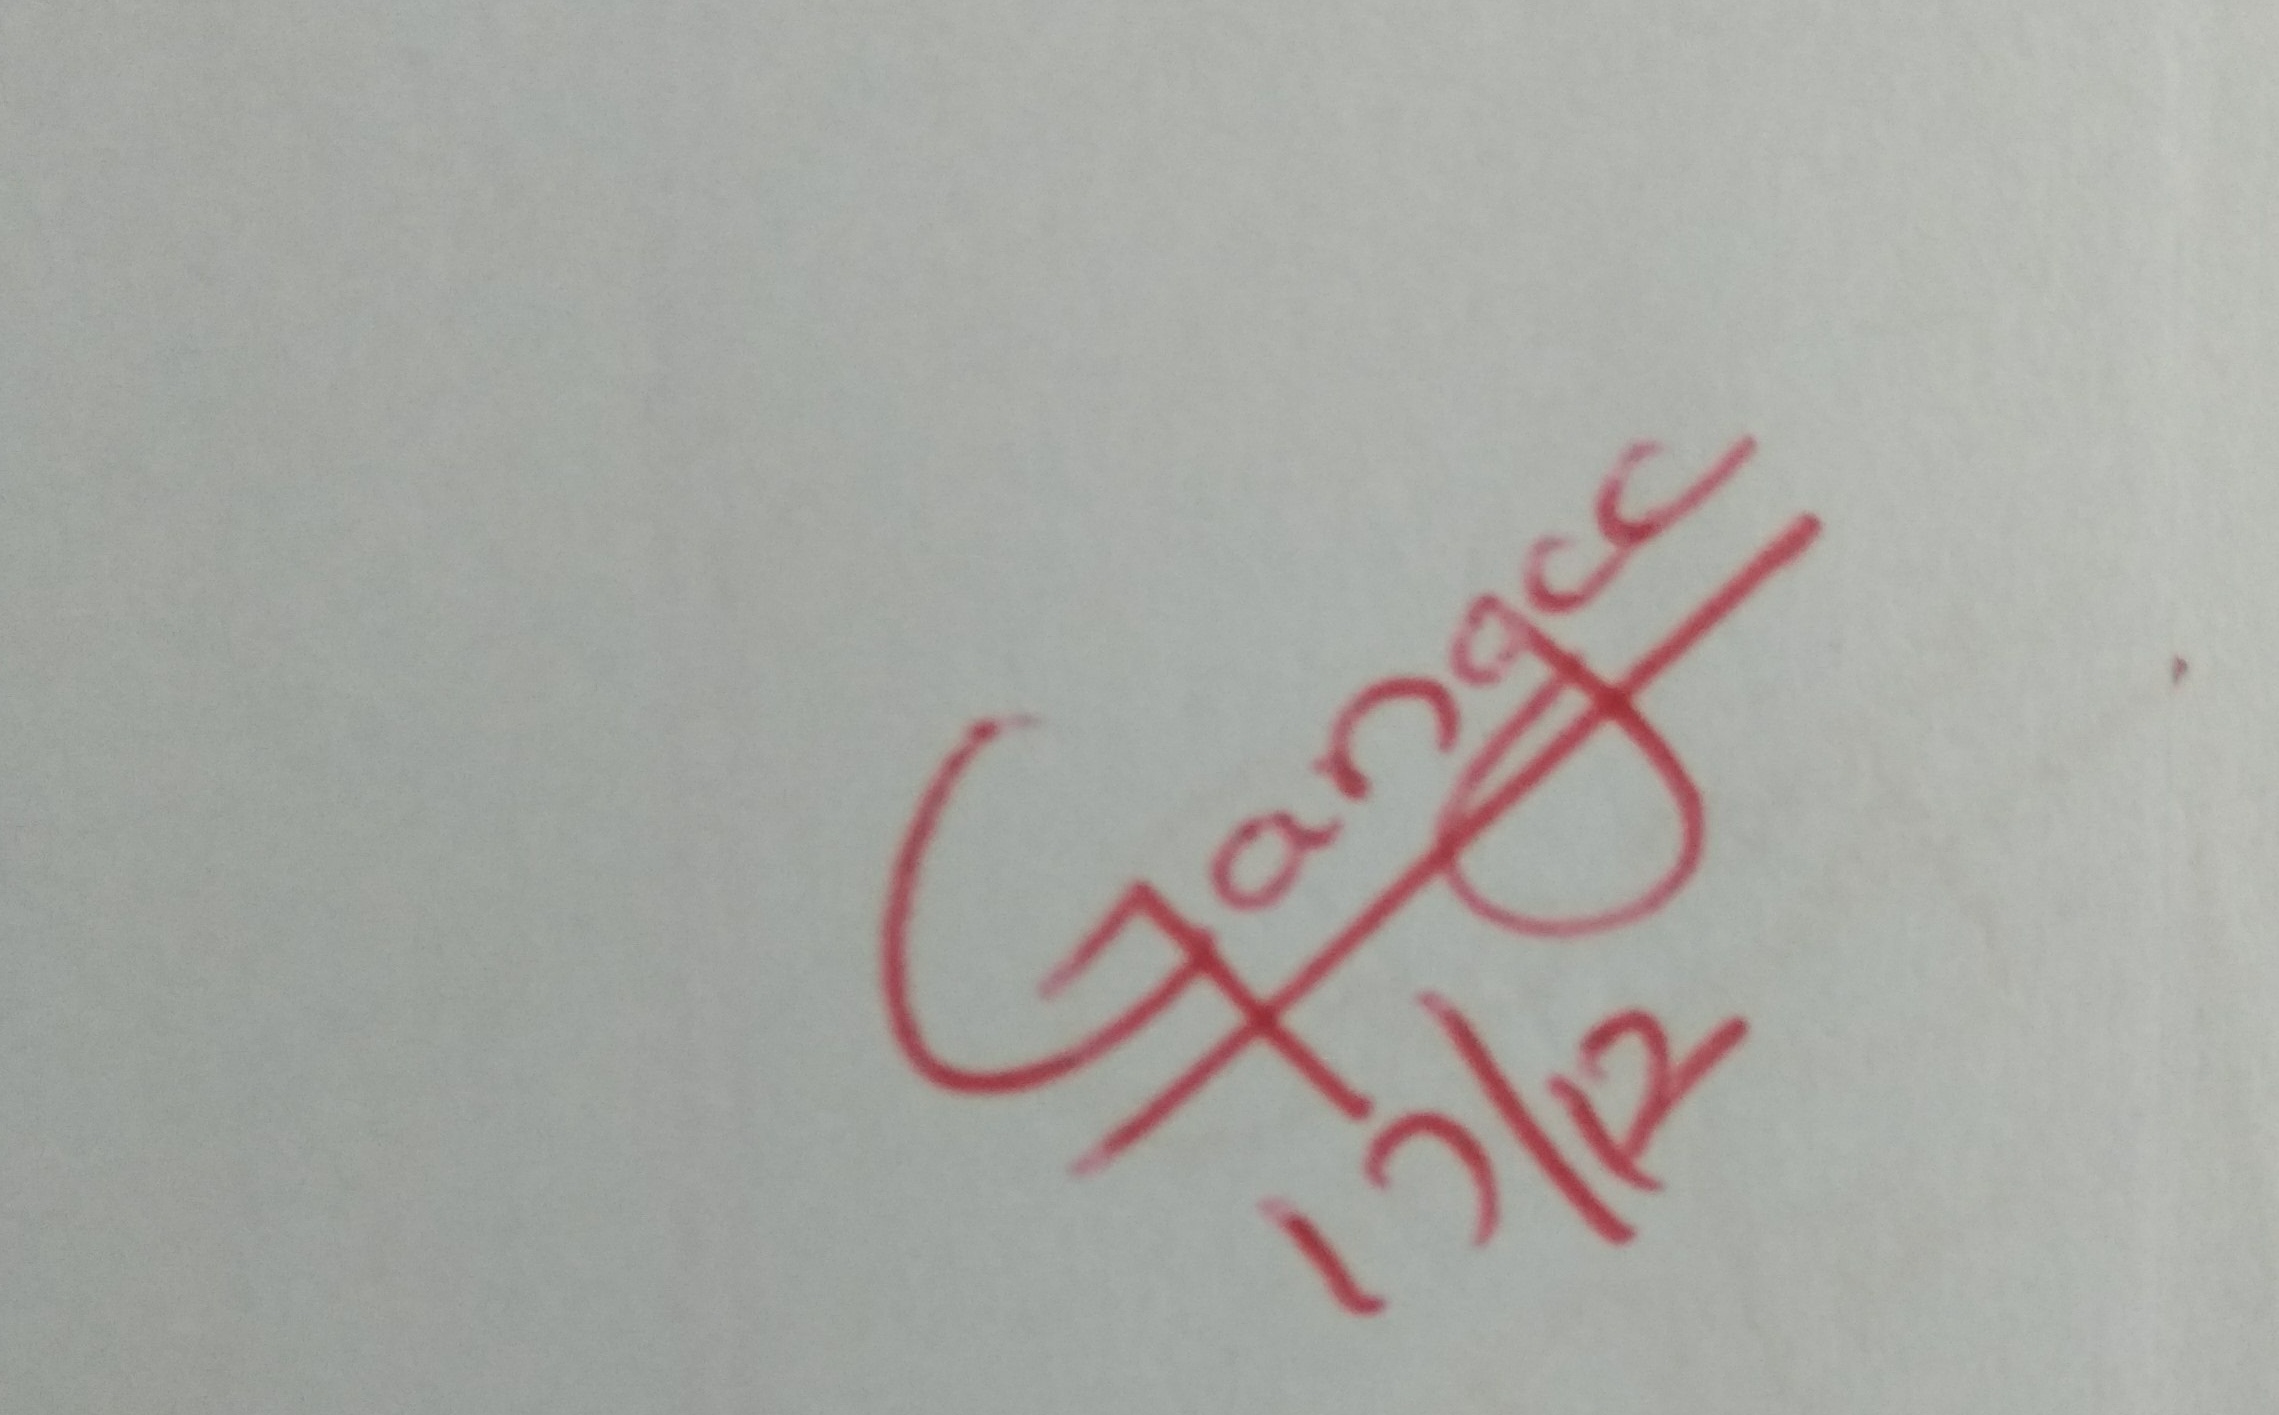 Gangcc
17/12